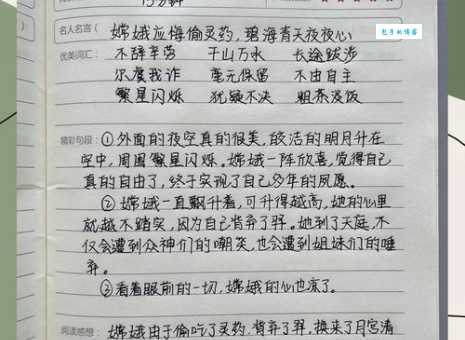 15分钟
包子的博客
名人名言（ 嫦娥应悔偷灵药，碧海青天夜夜心
优美词汇： 不辞辛劳 千山万水 长途跋涉
尔虞我诈 毫无保留 不由自主
繁星闪烁 犹疑不决 粗茶淡饭
精彩句段： ①外面的夜空真的很美，皎洁的明月升在
空中，周围繁星闪烁。嫦娥一阵欣喜，觉得自己
真的自由了，终于实现了自己多年的夙愿。
②嫦娥一直飘升着，可升得越高，她的心里
就越不踏实，因为自己背弃了羿。她到了天庭，不
仅会遭到众神们的嘲笑，也会遭到姐妹们的唾
弃。
③看着眼前的一切，嫦娥的心也凉了。
阅读感想： 嫦娥由于偷吃了灵药，背弃了羿，换来了月宫清